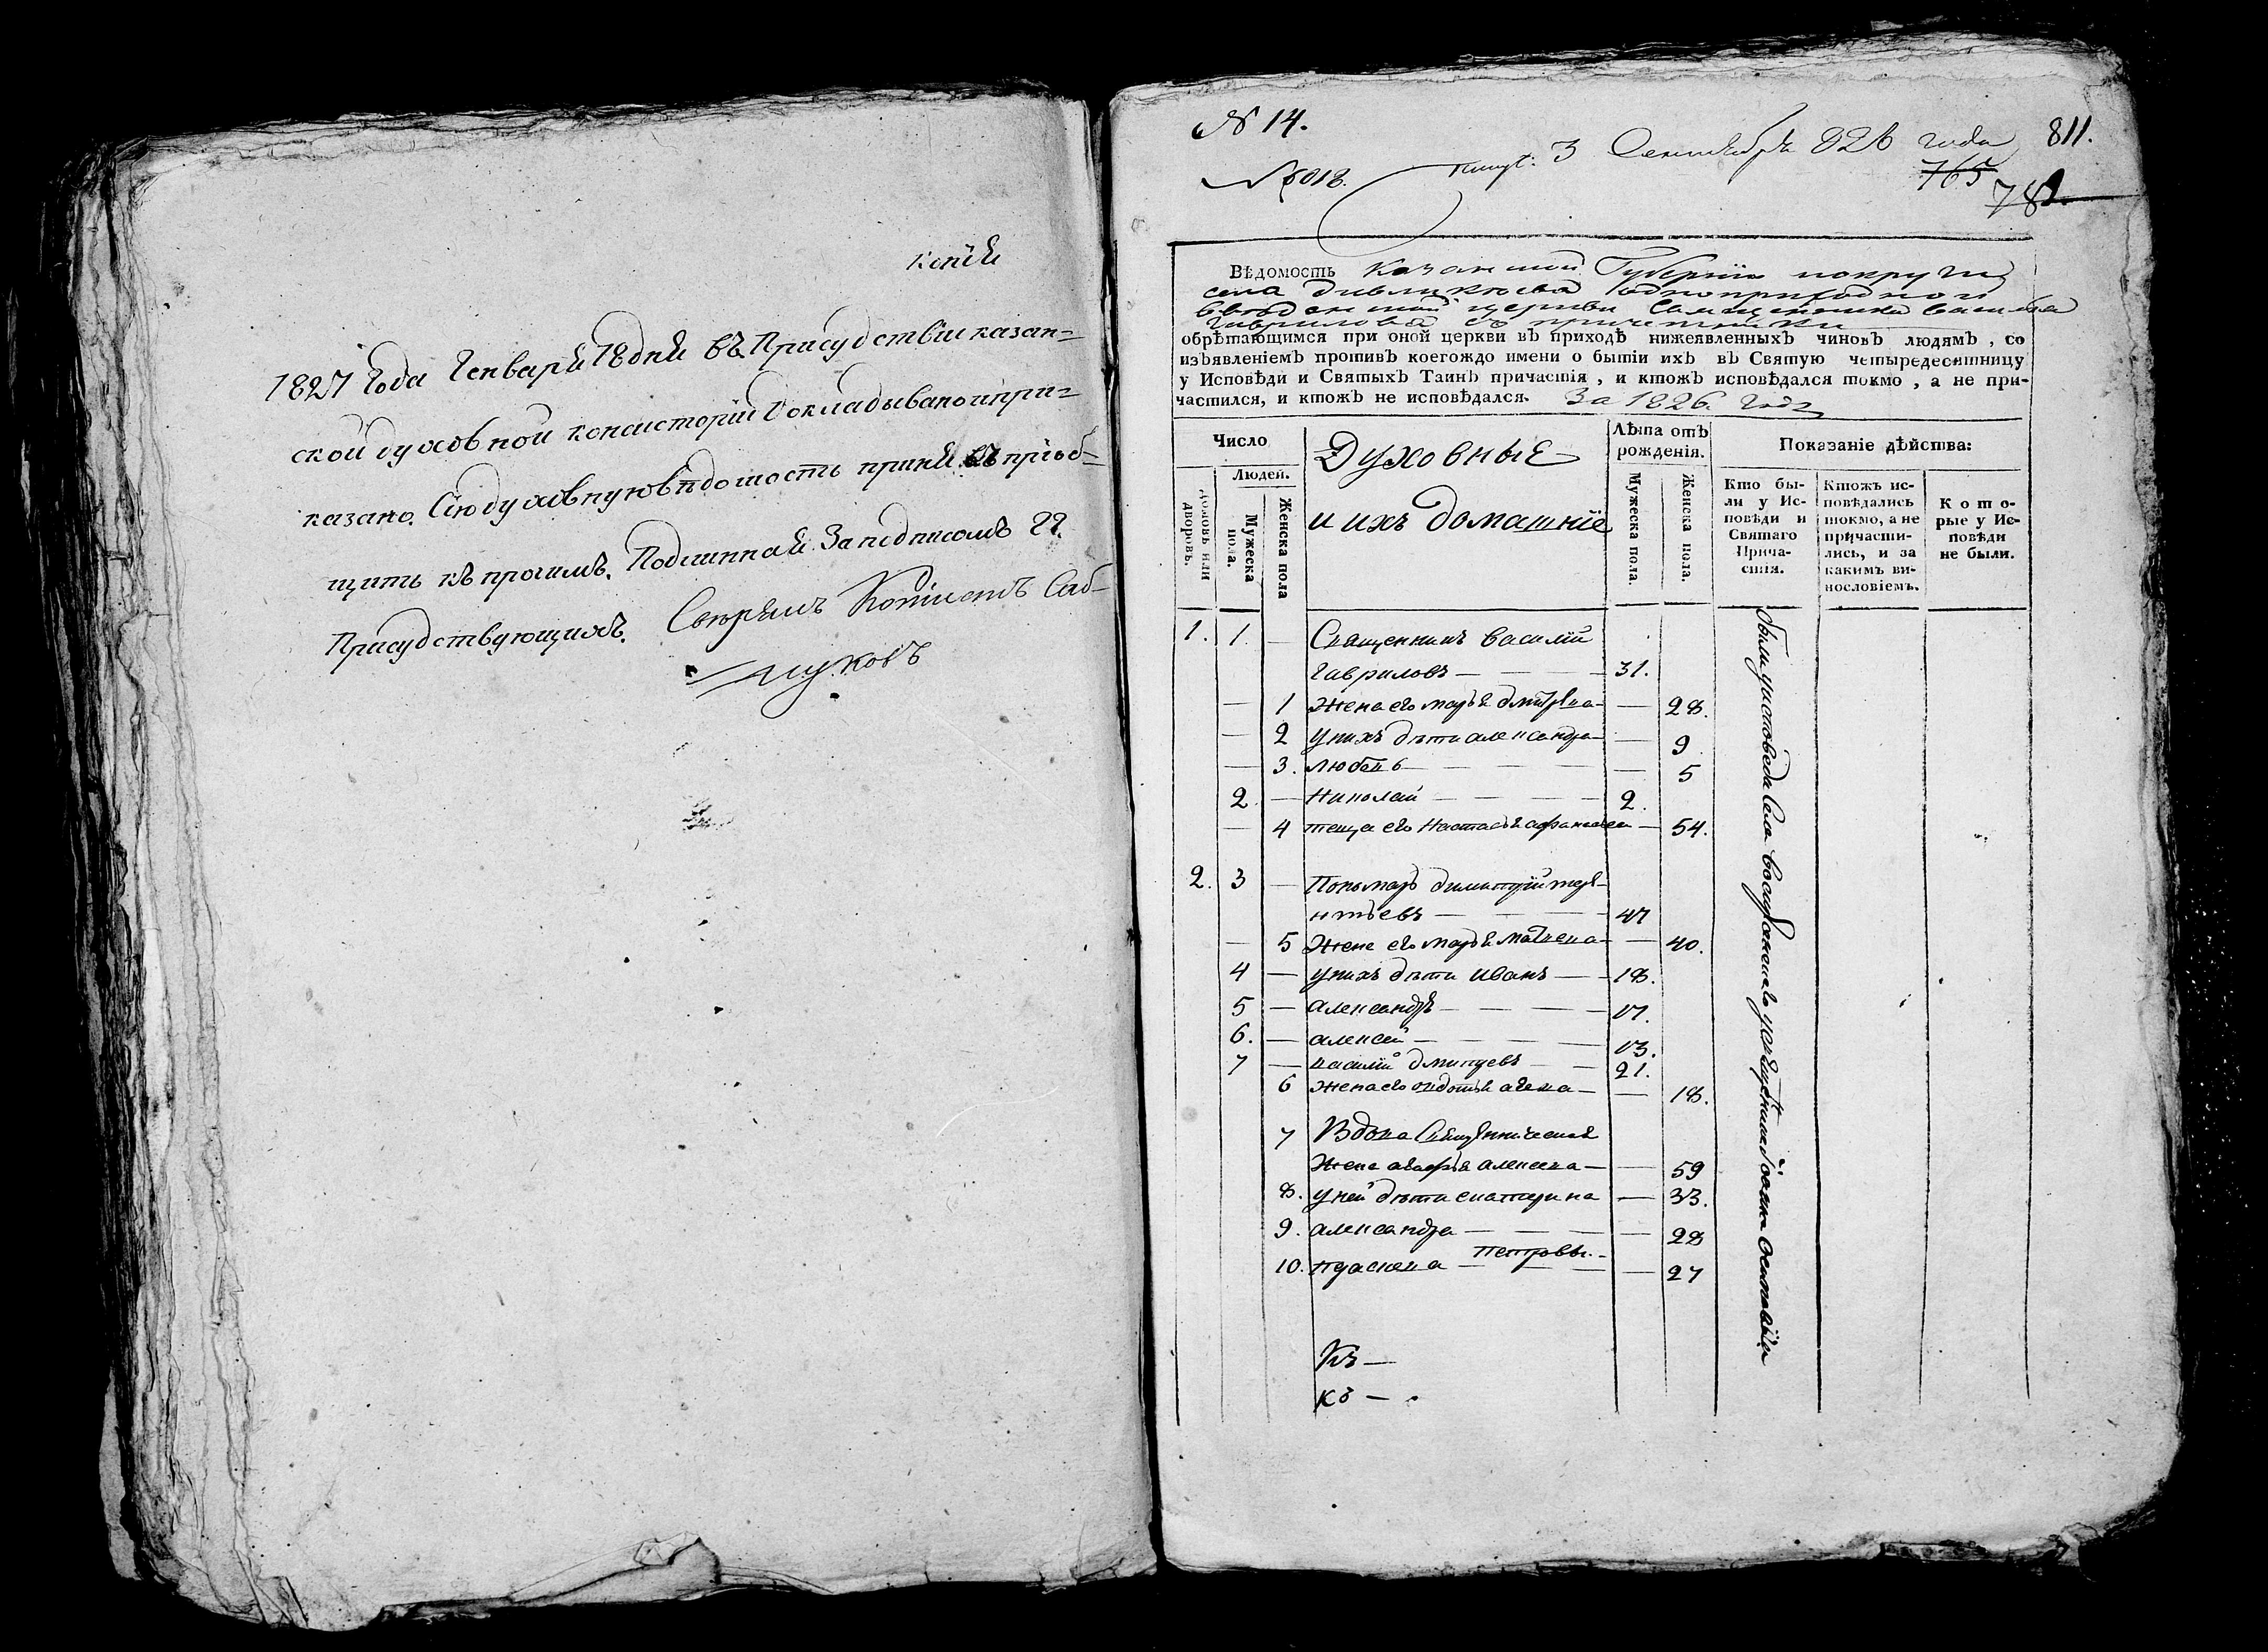 копія
1827 Года Генваря 18 дня въ Присудствіи казан=
ской духовной консисторіи Докладывано и при=
казано. Сію духовную вѣдомость приня въ пріоб=
щить къ прочимъ. Подлинная За подписомъ ГГ.
Присудствующихъ. Свѣрялъ Копіистъ
№ 14.
3 Сентября 826 года
811.
765
Вѣдомость Казанской Губерніи
села одноприходной
церкви Священника Василья
Гаврилова съ причетники
обрѣтающимся при оной церкви въ приходѣ нижеявленныхъ чиновъ людямъ, со
изъявленіемъ противъ коегождо имени о бытіи ихъ въ Святую четыредесятницу
у Исповѣди и Святыхъ Таинъ причастія, и ктожъ исповѣдался токмо, а не при-
частился, и ктожъ не исповѣдался. За 1826. Годъ
Число
Людей.
Домовъ или дворовъ.
Мужеска пола.
Женска пола
Духовные
и ихъ домашніе
Лѣта отъ рожденія.
Мужеска пола.
Женска пола.
Показаніе дѣйства:
Кто бы-
ли у Ис-
повѣди и
Святаго
Прича-
стія.
Ктожъ ис-
повѣдались
токмо, а не
причасти-
лись, и за
какимъ ви-
нословіемъ.
Кото-
рые у Ис-
повѣди
не были.
1. 1. — Священникъ Василій
Гавриловъ — 31.
— 1 Жена его марья дмитрева — 28.
— 2 у нихъ дѣти александра — 9
— 3. любовь — 5
2 — Николай — 2.
— 4 теща его Настасья — 54.
2. 3 — Пономарь димитрій
нтьевъ — 47
— 5 Жена его марья матвеева — 40.
4 — у нихъ дѣти иванъ — 18.
5 — александръ — 17.
6. — алексей — 13.
7 — василій дмитревъ — 21.
6 Жена его — 18.
7 Вдова Священническая
Жена алексеева — 59
8. у ней дѣти екатерина — 33.
9. александра — 28
Петровы.
10. — 27
были у исповеди села
Къ —
къ —